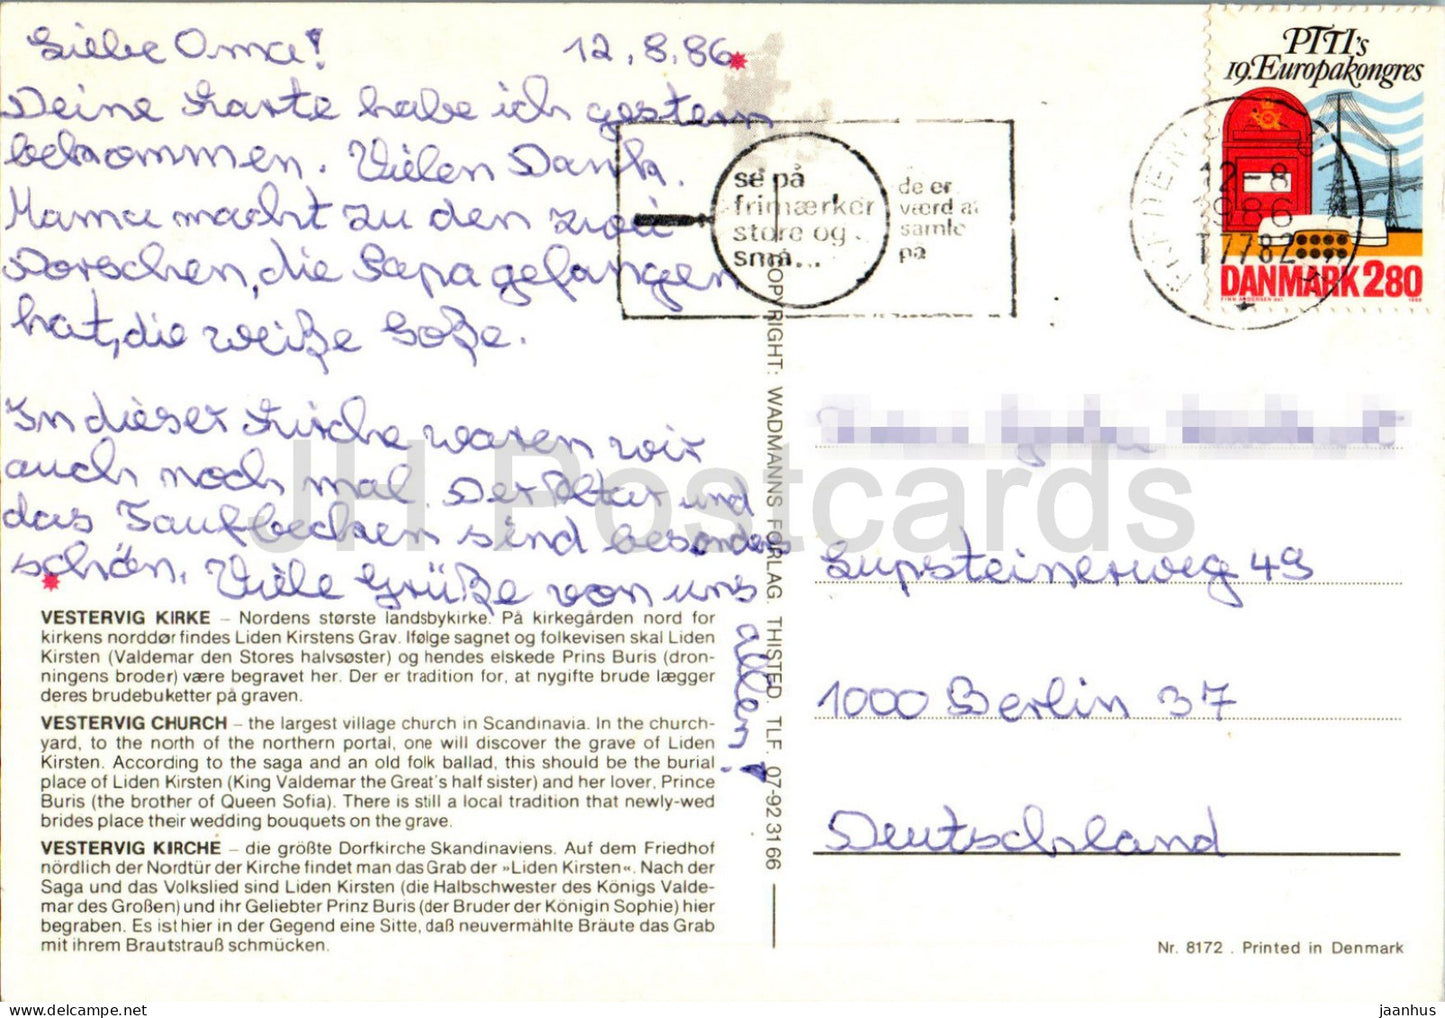 Liebe Oma! 12.8.86
Deine Karte habe ich gestern
bekommen. Vielen Dank.
Mama macht zu den zwei
Dorschen, die Papa gefangen
hat, die weiße Soße.
In dieser Kirche waren wir
auch noch mal. Der Altar und
das Taufbecken sind besonders
schön. Viele Grüße von uns
allen!
VESTERVIG KIRKE – Nordens største landsbykirke. På kirkegården nord for
kirkens norddør findes Liden Kirstens Grav. Ifølge sagnet og folkevisen skal Liden
Kirsten (Valdemar den Stores halvsøster) og hendes elskede Prins Buris (dron-
ningens broder) være begravet her. Der er tradition for, at nygifte brude lægger
deres brudebuketter på graven.
VESTERVIG CHURCH – the largest village church in Scandinavia. In the church-
yard, to the north of the northern portal, one will discover the grave of Liden
Kirsten. According to the saga and an old folk ballad, this should be the burial
place of Liden Kirsten (King Valdemar the Great's half sister) and her lover, Prince
Buris (the brother of Queen Sofia). There is still a local tradition that newly-wed
brides place their wedding bouquets on the grave.
VESTERVIG KIRCHE – die größte Dorfkirche Skandinaviens. Auf dem Friedhof
nördlich der Nordtür der Kirche findet man das Grab der »Liden Kirsten«. Nach der
Saga und das Volkslied sind Liden Kirsten (die Halbschwester des Königs Valde-
mar des Großen) und ihr Geliebter Prinz Buris (der Bruder der Königin Sophie) hier
begraben. Es ist hier in der Gegend eine Sitte, daß neuvermählte Bräute das Grab
mit ihrem Brautstrauß schmücken.
COPYRIGHT: WADMANNS FORLAG. THISTED. TLF. 07-92 31 66
se på
frimærker
store og
små...
de er
værd at
samle
på
PTTI's
19. Europakongres
DANMARK 280
12-8
1986
17782
Lupsteinerweg 49
1000 Berlin 37
Deutschland
Nr. 8172 . Printed in Denmark
JH Postcards
jaanhus © HipPostcard.com